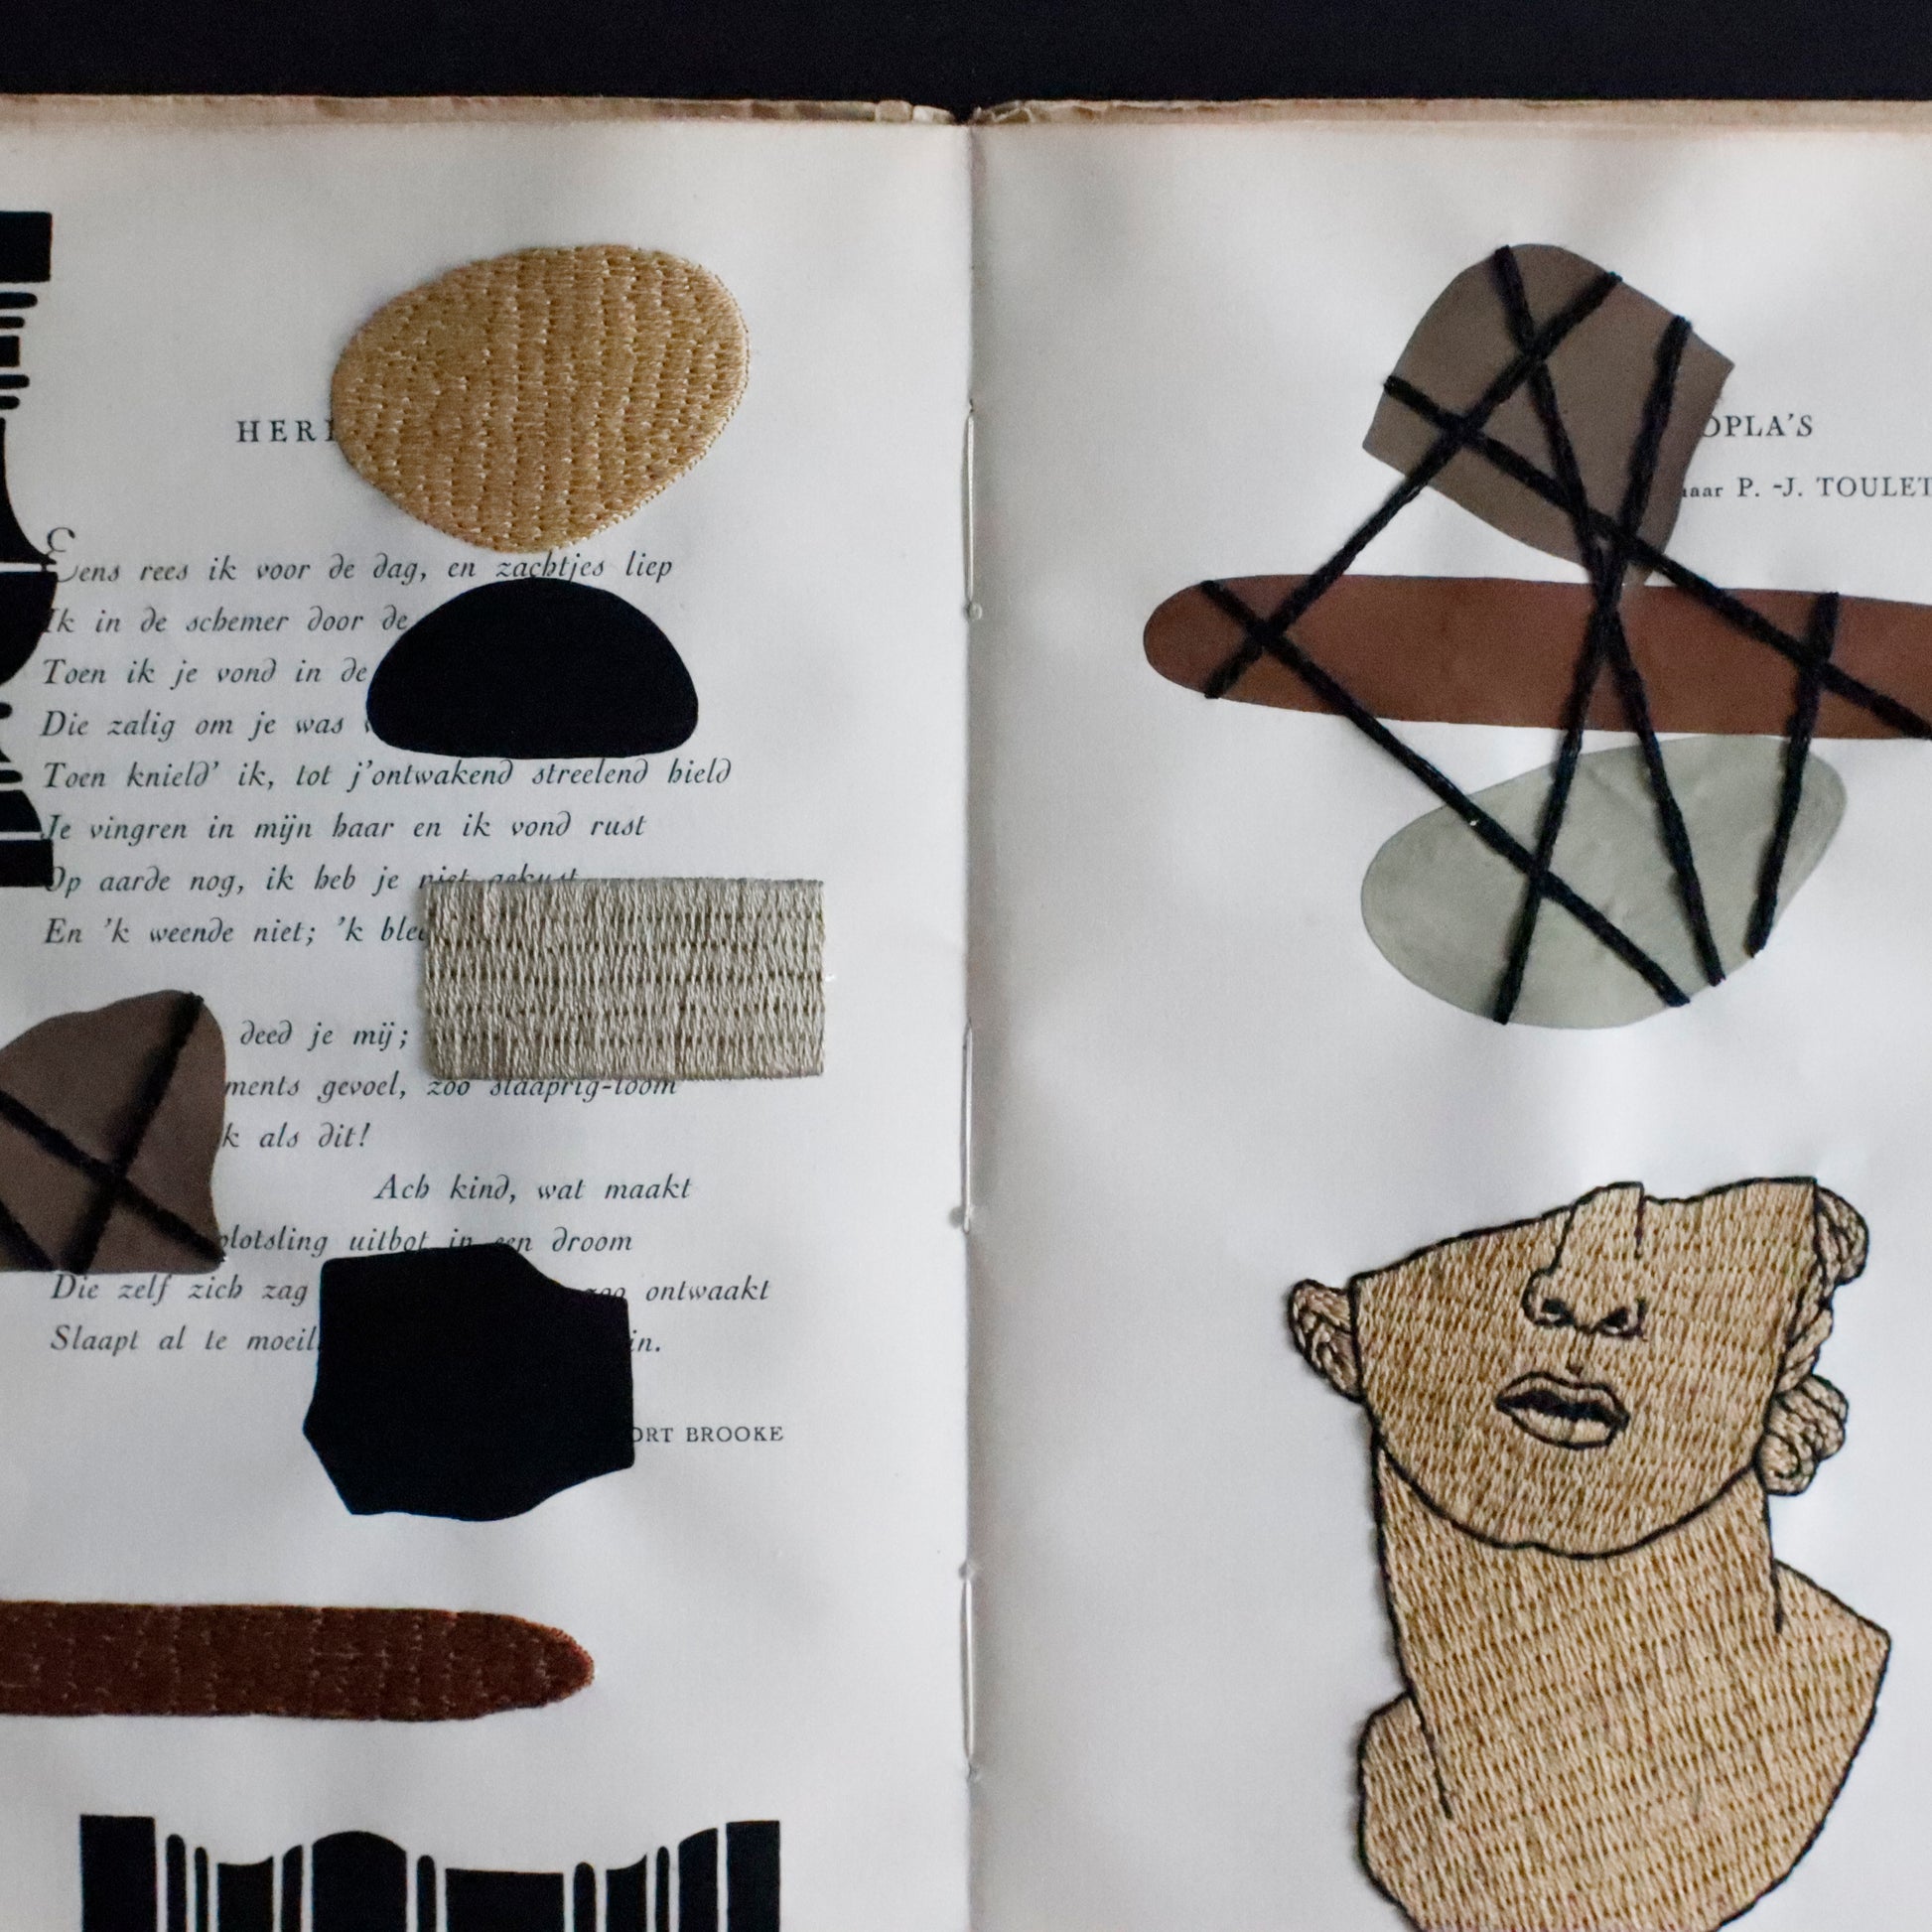 HERI
Eens rees ik voor de dag, en zachtjes liep
Ik in de schemer door de
Toen ik je vond in de
Die zalig om je was
Toen knield' ik, tot j'ontwakend streelend hield
Je vingren in mijn haar en ik vond rust
Op aarde nog, ik heb je niet gekust
En 'k weende niet; 'k blee
deed je mij;
ments gevoel, zoo slaaprig-loom
k als dit!
Ach kind, wat maakt
plotsling uitbot in een droom
Die zelf zich zag zoo ontwaakt
Slaapt al te moeil in.
ORT BROOKE
OPLA'S
naar P. -J. TOULET